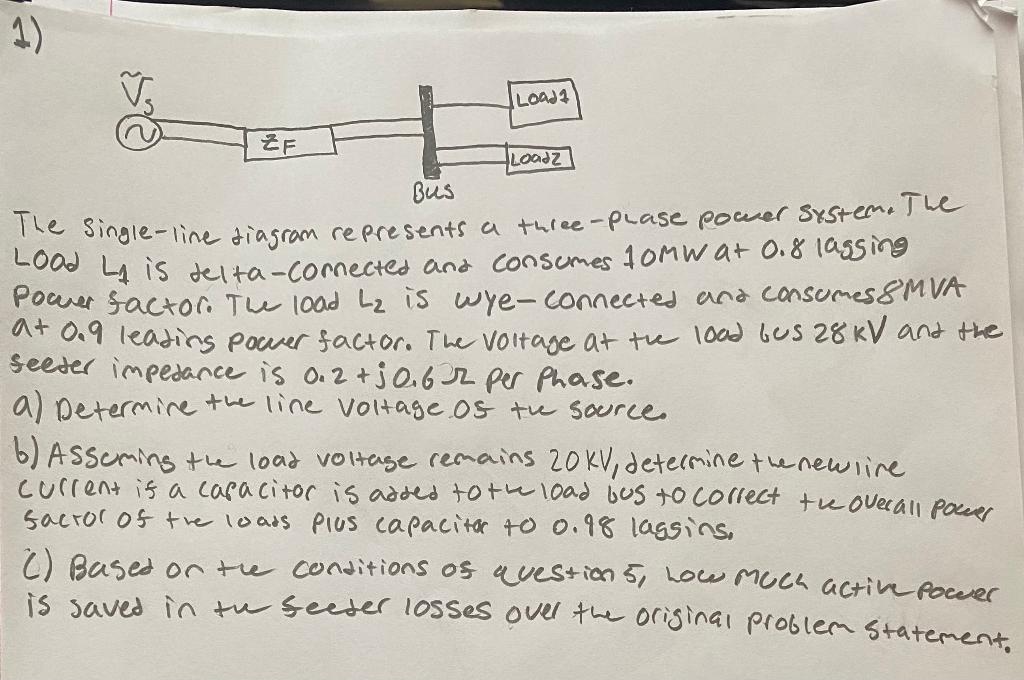 1)
Ṽs
ZF
Load1
Load2
Bus
The single-line diagram represents a three-phase power system. The
Load L1 is delta-connected and consumes 10MW at 0.8 lagging
power factor. The load L2 is wye-connected and consumes 8MVA
at 0.9 leading power factor. The voltage at the load bus 28 kV and the
feeder impedance is 0.2 + j0.6 Ω per phase.
a) Determine the line voltage of the source.
b) Assuming the load voltage remains 20 kV, determine the new line
current if a capacitor is added to the load bus to correct the overall power
factor of the loads plus capacitor to 0.98 lagging.
C) Based on the conditions of question 5, how much active power
is saved in the feeder losses over the original problem statement.